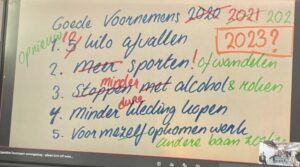 Goede Voornemens 2020 2021 202
opnieuw 2023?
1. 5 kilo afvallen
2. meer sporten! of wandelen
minder
3. Stoppen met alcohol & roken
dure
4. minder kleding kopen
5. Voor mezelf opkomen werk
andere baan zoeken